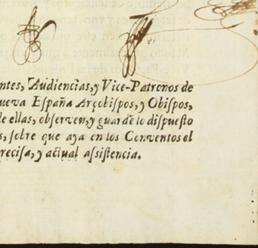 ntes, Audiencias, y Vice-Patronos de
ueva España Arçobispos, y Obispos,
de ellas, observen, y guarde lo dispuesto
s, sobre que aya en los Conventos el
recisa, y actual assistencia.